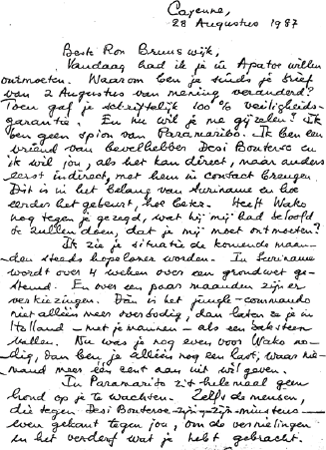 Cayenne,
28 Augustus 1987
Beste Ron Brunswijk,
Vandaag had ik je in Apatou willen
ontmoeten. Waarom ben je sinds je brief
van 2 Augustus van mening veranderd?
Toen gaf je schriftelijk 100% veiligheids-
garantie. En nu wil je me gijzelen? Ik
ben geen spion van Paramaribo. Ik ben een
vriend van bevelhebber Desi Bouterse en
ik wil jou, als het kan direct, maar anders
eerst indirect, met hem in contact brengen.
Dit is in het belang van Suriname en hoe
eerder het gebeurt, hoe beter. Heeft Wako
nog tegen je gezegd, wat hij mij had beloofd
te zullen doen, dat je mij moet ontmoeten?
Ik zie je situatie de komende maan-
den steeds hopelozer worden. In Suriname
wordt over 4 weken over een grondwet ge-
stemd. En over een paar maanden zijn er
verkiezingen. Dan is het jungle-commando
niet alleen meer overbodig, dan laten ze je in
Holland – met je mannen – als een baksteen
vallen. Nu was je nog even voor Wako no-
dig, dan ben je alleen nog een last, waar nie-
mand meer één cent aan uit wil geven.
In Paramaribo zit helemaal geen
hond op je te wachten. Zelfs de mensen,
die tegen Desi Bouterse zijn, zijn minstens
even gekant tegen jou, om de vernielingen
en het verderf wat je hebt gebracht.